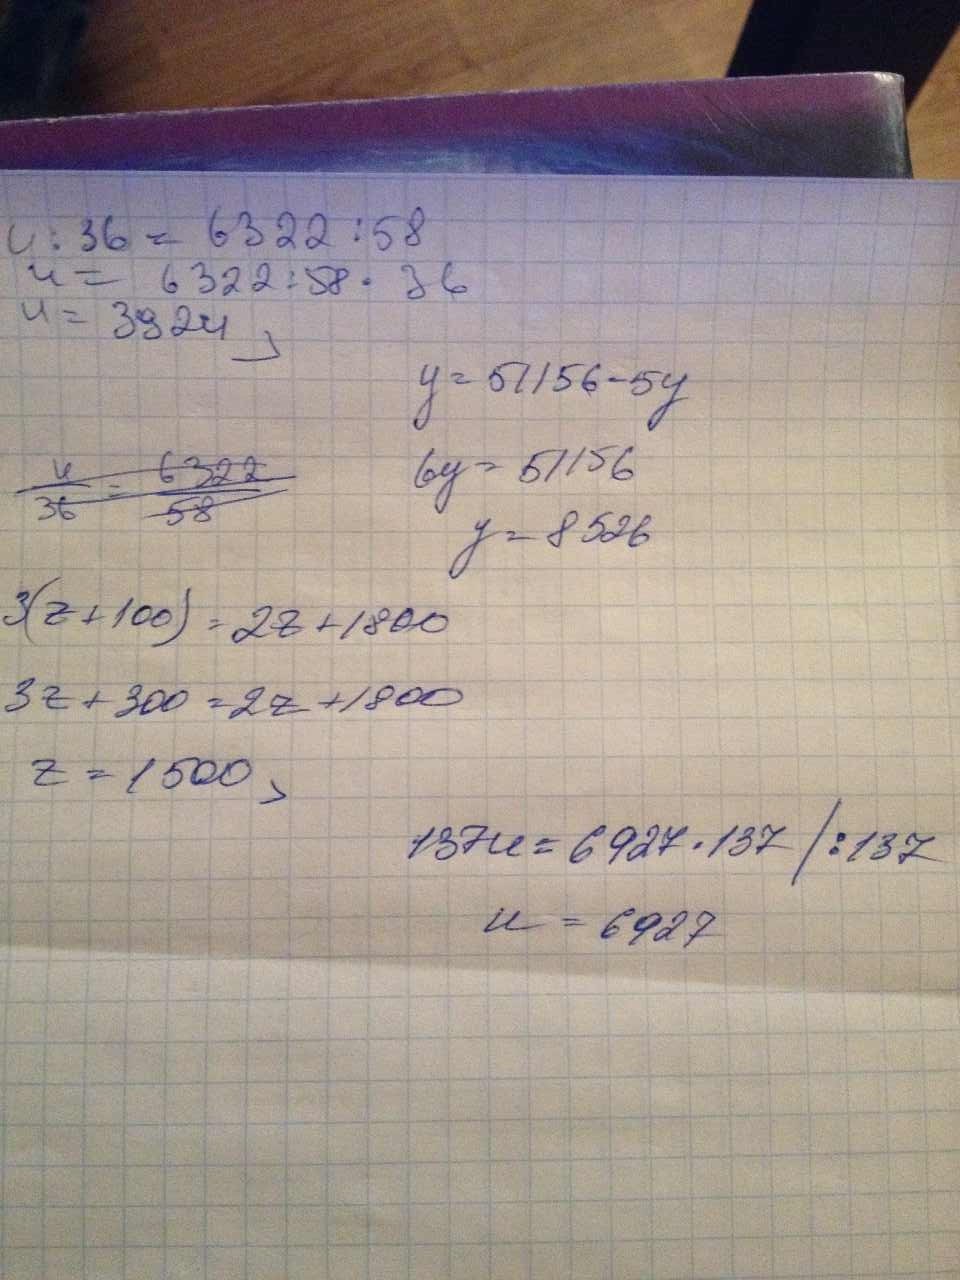 u : 36 = 6322 : 58
u = 6322 : 58 · 36
u = 3924
y = 51156 - 5y
6y = 51156
y = 8526
u/36 = 6322/58
3(z + 100) = 2z + 1800
3z + 300 = 2z + 1800
z = 1500
137u = 6927 · 137 / : 137
u = 6927